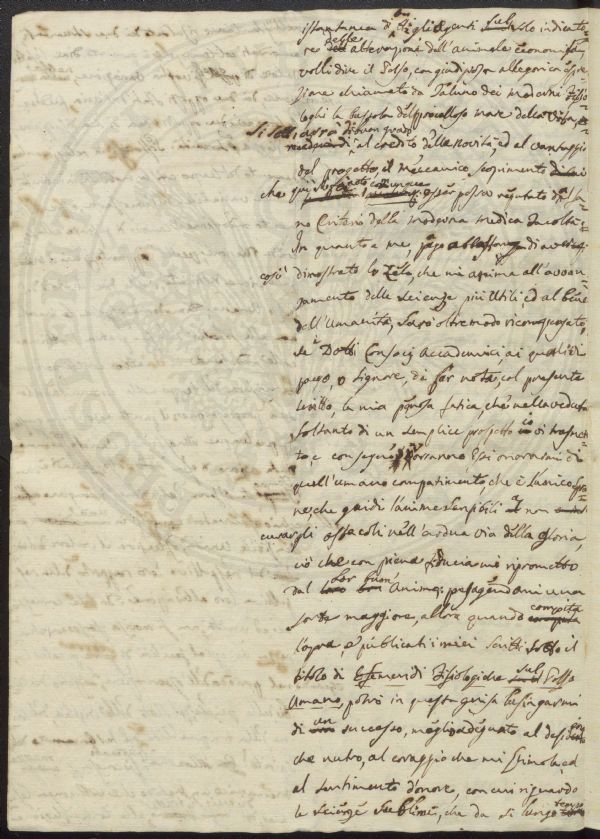 istantanea di Agli Agenti sul solo indicato-
re delle aberrazione dell'animale economia,
volli dire il Polso, con giudiziosa allegorica espre-
sione chiamato da taluno dei moderni Fisio-
loghi la bussola del procelloso mare della vita,
di buon grado
al credito della novità, ed al vantaggio
del progetto, il meccanico scoprimento di cui
che qui comunque esser possa reputato dal sa-
no Criterio della moderna medica Facoltà =
In quanto a me, pago abbastanza di aver
così dimostrato lo Zelo, che mi anima all'avan-
zamento delle scienze più utili, ed al bene
dell'Umanità, sarò oltremodo ricompensato,
se i Dotti Consocj Accademici, ai quali di
pregо, o Signore, di far nota, col presente
scritto, la mia penosa fatica, che nella veduta
soltanto di un semplice prospetto io vi trasmet-
to, e consegno, vorranno Essi onorarmi di
quell'umano compatimento, che è l'unico
che guidi l'anime sensibili a non
curar gli ostacoli nell'ardua via della Gloria,
ciò che con piena fiducia mi riprometto
dal lor buon animo: presagendomi una
sorte maggiore, allora quando compita
l'opra, e pubblicati i miei scritti sotto il
titolo di Efemeridi Fisiologiche sul Polso
Umano, potrò in questa guisa lusingarmi
di un successo, meglio adeguato al desiderio
che nutro, al coraggio che mi stimola, ed
al sentimento d'onore, con cui riguardo
le scienze sublimi, che da sì lungo tempo